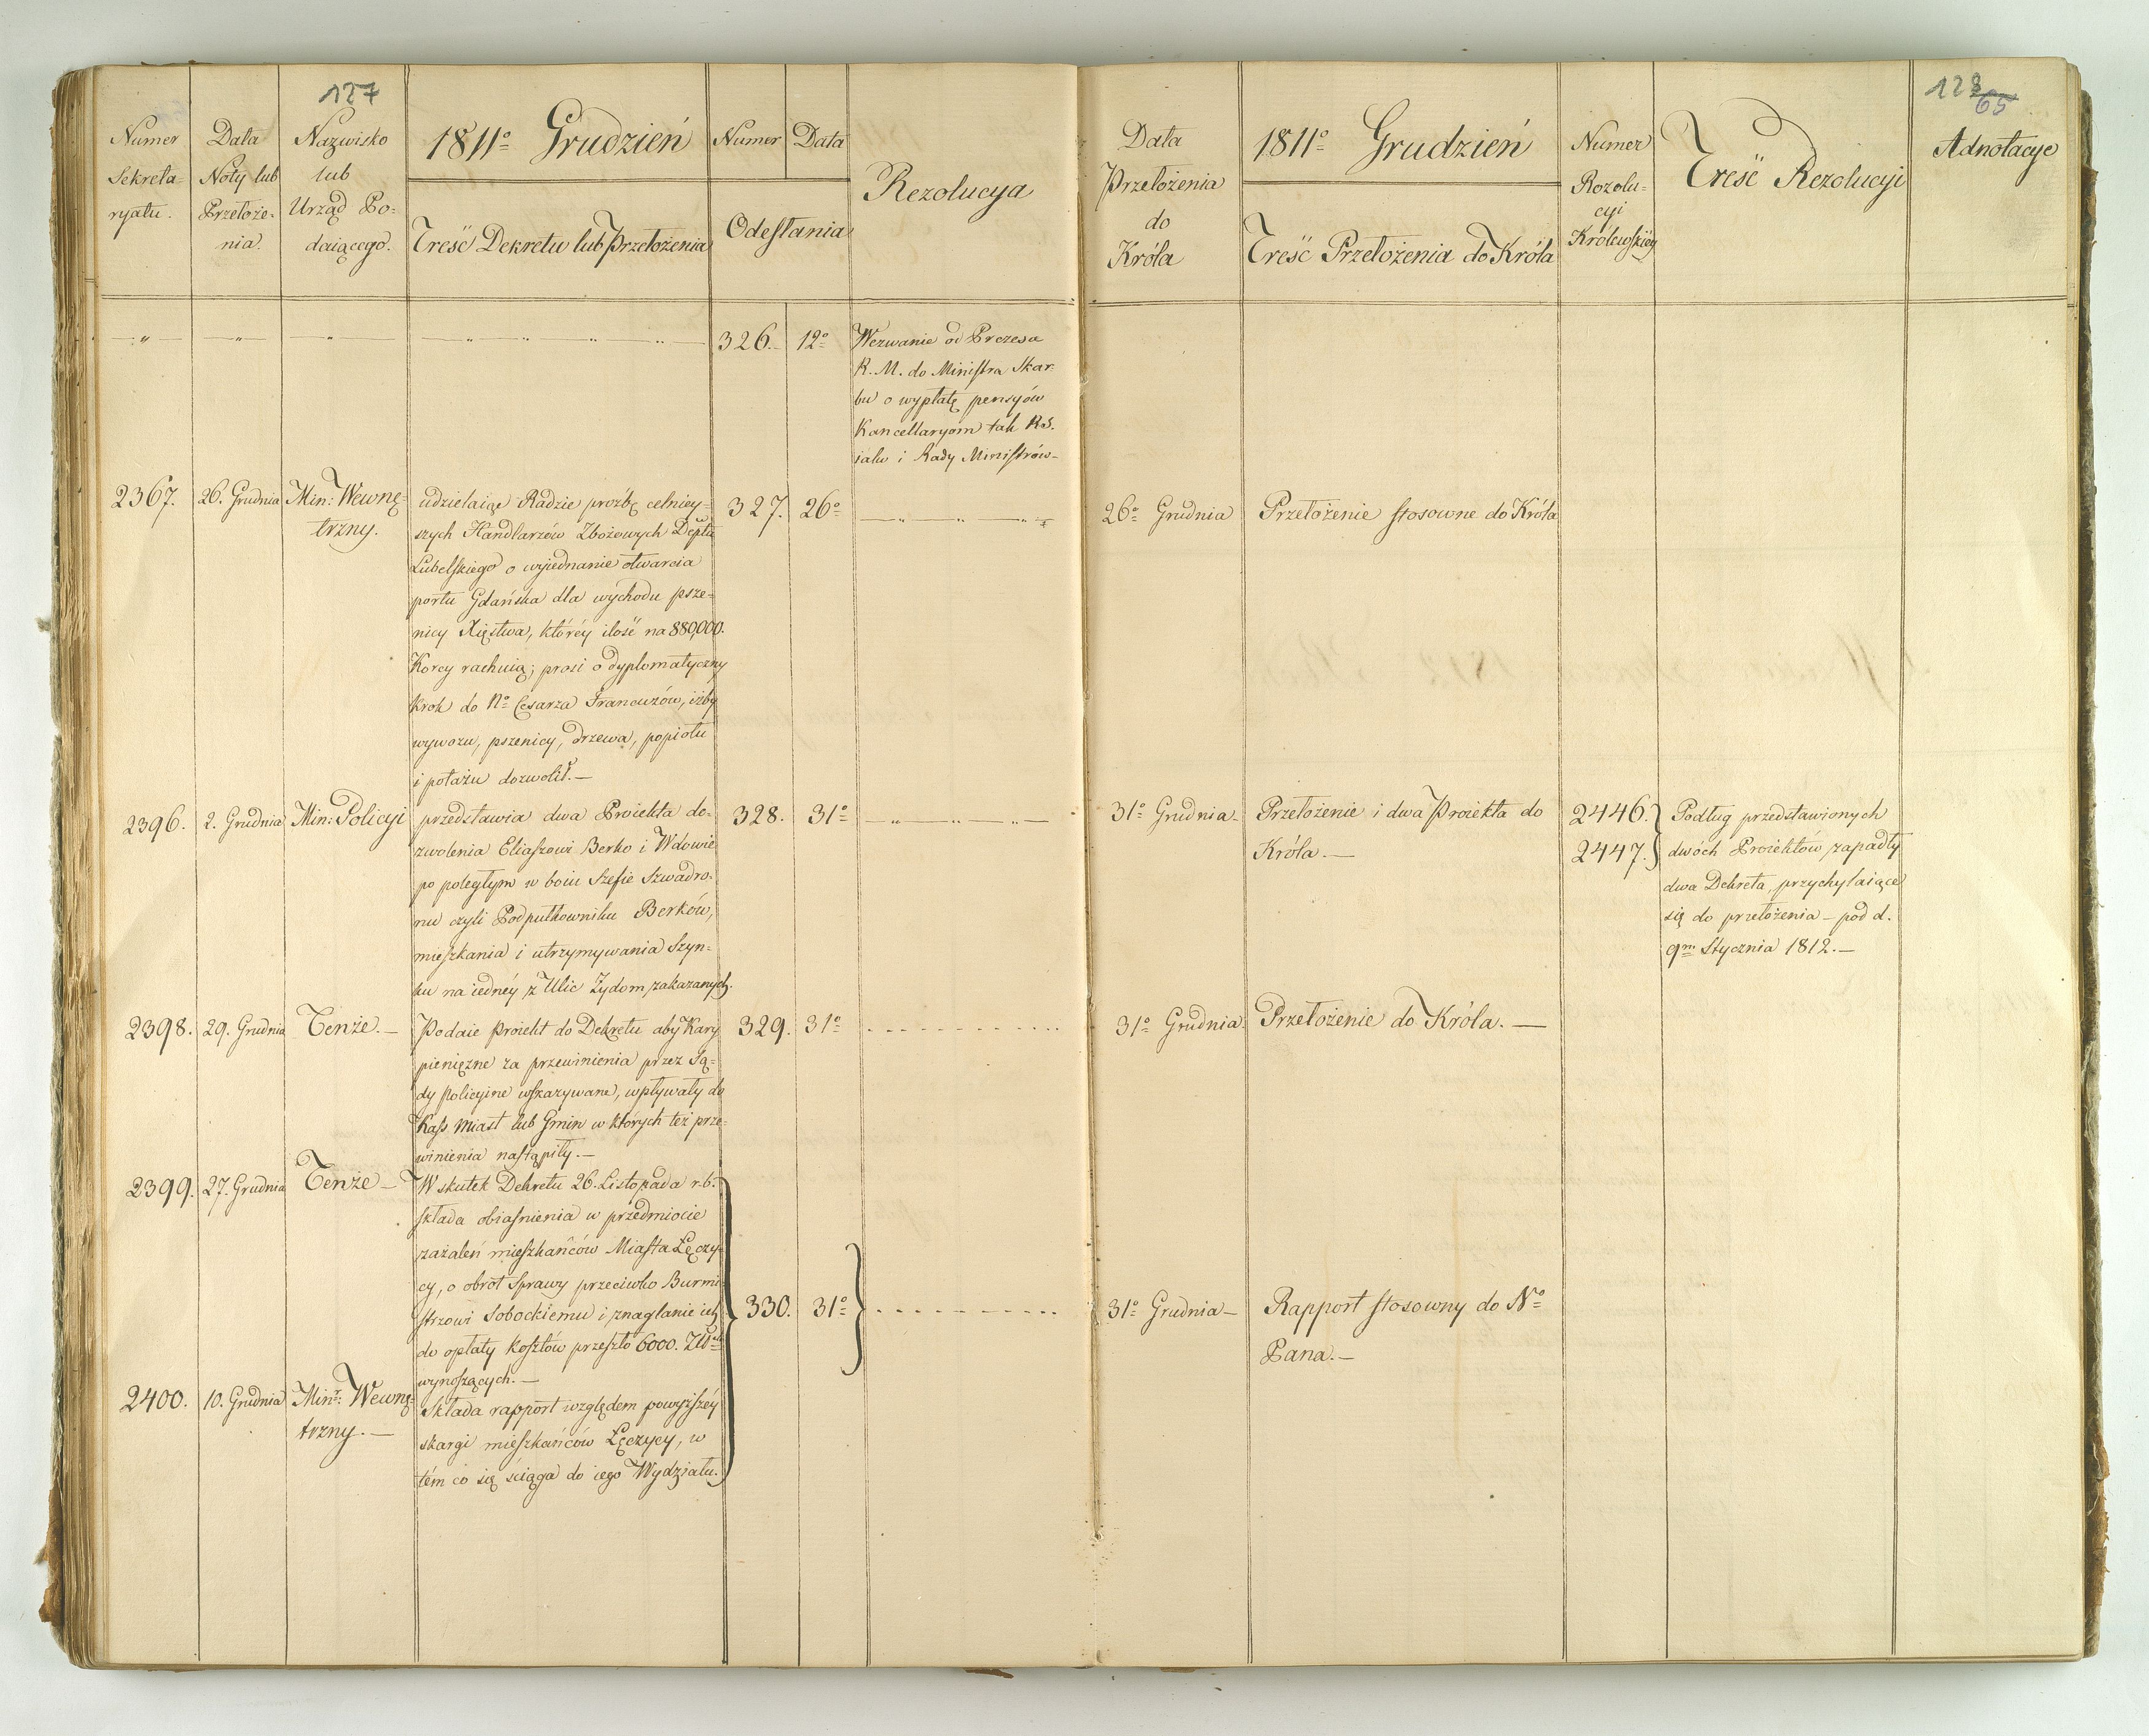 127
Numer
Sekreta
ryatu.
Data
Noty lub
Przełoże-
nia.
Nazwisko
lub
Urząd Po-
daiącego.
1811º Grudzień
Treść Dekretu lub Przełożenia
Numer Data
Odesłania
Rezolucya
326. 12º
Wezwanie od Prezesa
R. M. do Ministra Skar-
bu o wypłatę pensyów
Kancellaryom tak R. S.
iako i Rady Ministrów-
2367. 26. Grudnia Min: Wewnę-
trzny.
udzielaiąc Radzie prożbę celniey-
szych Handlarzów Zbożowych Deptu
Lubelskiego o wyiednanie otwarcia
portu Gdańska dla wychodu psze-
nicy Xięstwa, któréy ilość na 880,000.
Korcy rachuią; prosi o dyplomatyczny
krok do Nº Cesarza Francuzów, iżby
wywozu, pszenicy, drzewa, popiołu
i potażu dozwolił.-
327. 26º
2396. 2. Grudnia Min: Policyi
przedstawia dwa Proiekta do-
zwolenia Eliaszowi Berko i Wdowie
po poległym w boiu Szefie Szwadro-
nu czyli Podpułkowniku Berków,
mieszkania i utrzymywania Szyn-
ku na iednéy z Ulic Żydom zakazanych.
328. 31º
2398. 29. Grudnia Tenże.-
Podaie proiekt do Dekretu aby Kary
pieniężne za przewinienia przez Są-
dy policyine wskazywane, wpływały do
Kass Miast lub Gmin w których też prze-
winienia nastąpiły.-
329. 31º
2399. 27. Grudnia Tenże-
W skutek Dekretu 26. Listopada r. b.
składa obiaśnienia w przedmiocie
zażaleń mieszkańców Miasta Łęczy-
cy, o obrot Sprawy przeciwko Burmi-
strzowi Sobockiemu i znaglanie ich
do opłaty kosztów przeszło 6000. Złº
wynoszących.-
330. 31º
2400. 10. Grudnia Minr: Wewnę-
trzny.-
Składa rapport względem powyższéy
skargi mieszkańców Łęczycy, w
tém co się ściąga do iego Wydziału.
128
65
Data
Przełożenia
do
Króla
1811º Grudzień
Treść Przełożenia do Króla
Numer
Rozolu-
cyi
Królewskiey
Treść Rezolucyi
Adnotacye
26º Grudnia Przełożenie stosowne do Króla
31º Grudnia- Przełożenie i dwa Proiekta do
Króla.-
2446.
2447.
Podług przedstawionych
dwóch Proiektów zapadły
dwa Dekreta, przychylaiące
się do przełożenia - pod d.
9m Stycznia 1812.-
31º Grudnia Przełożenie do Króla.-
31º Grudnia- Rapport stosowny do Nº
Pana.-